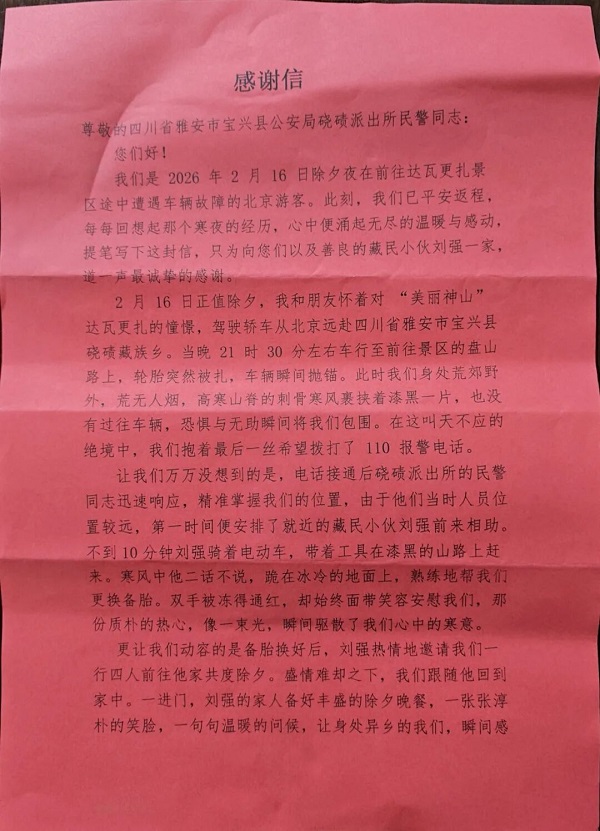 感谢信
尊敬的四川省雅安市宝兴县公安局硗碛派出所民警同志：
您们好！
我们是 2026 年 2 月 16 日除夕夜在前往达瓦更扎景
区途中遭遇车辆故障的北京游客。此刻，我们已平安返程，
每每回想起那个寒夜的经历，心中便涌起无尽的温暖与感动，
提笔写下这封信，只为向您们以及善良的藏民小伙刘强一家，
道一声最诚挚的感谢。
2 月 16 日正值除夕，我和朋友怀着对 “美丽神山”
达瓦更扎的憧憬，驾驶轿车从北京远赴四川省雅安市宝兴县
硗碛藏族乡。当晚 21 时 30 分左右车行至前往景区的盘山
路上，轮胎突然被扎，车辆瞬间抛锚。此时我们身处荒郊野
外，荒无人烟，高寒山脊的刺骨寒风裹挟着漆黑一片，也没
有过往车辆，恐惧与无助瞬间将我们包围。在这叫天不应的
绝境中，我们抱着最后一丝希望拨打了 110 报警电话。
让我们万万没想到的是，电话接通后硗碛派出所的民警
同志迅速响应，精准掌握我们的位置，由于他们当时人员位
置较远，第一时间便安排了就近的藏民小伙刘强前来相助。
不到 10 分钟刘强骑着电动车，带着工具在漆黑的山路上赶
来。寒风中他二话不说，跪在冰冷的地面上，熟练地帮我们
更换备胎。双手被冻得通红，却始终面带笑容安慰我们，那
份质朴的热心，像一束光，瞬间驱散了我们心中的寒意。
更让我们动容的是备胎换好后，刘强热情地邀请我们一
行四人前往他家共度除夕。盛情难却之下，我们跟随他回到
家中。一进门，刘强的家人备好丰盛的除夕晚餐，一张张淳
朴的笑脸，一句句温暖的问候，让身处异乡的我们，瞬间感